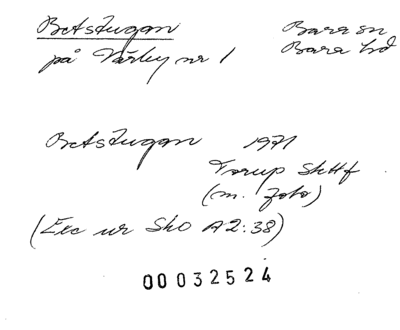 Betstugan Bara sn
på Värby nr 1 Bara hd
Betstugan 1971
Torup SkHf
(m. foto)
(Exc ur SkO A2:38)
00032524